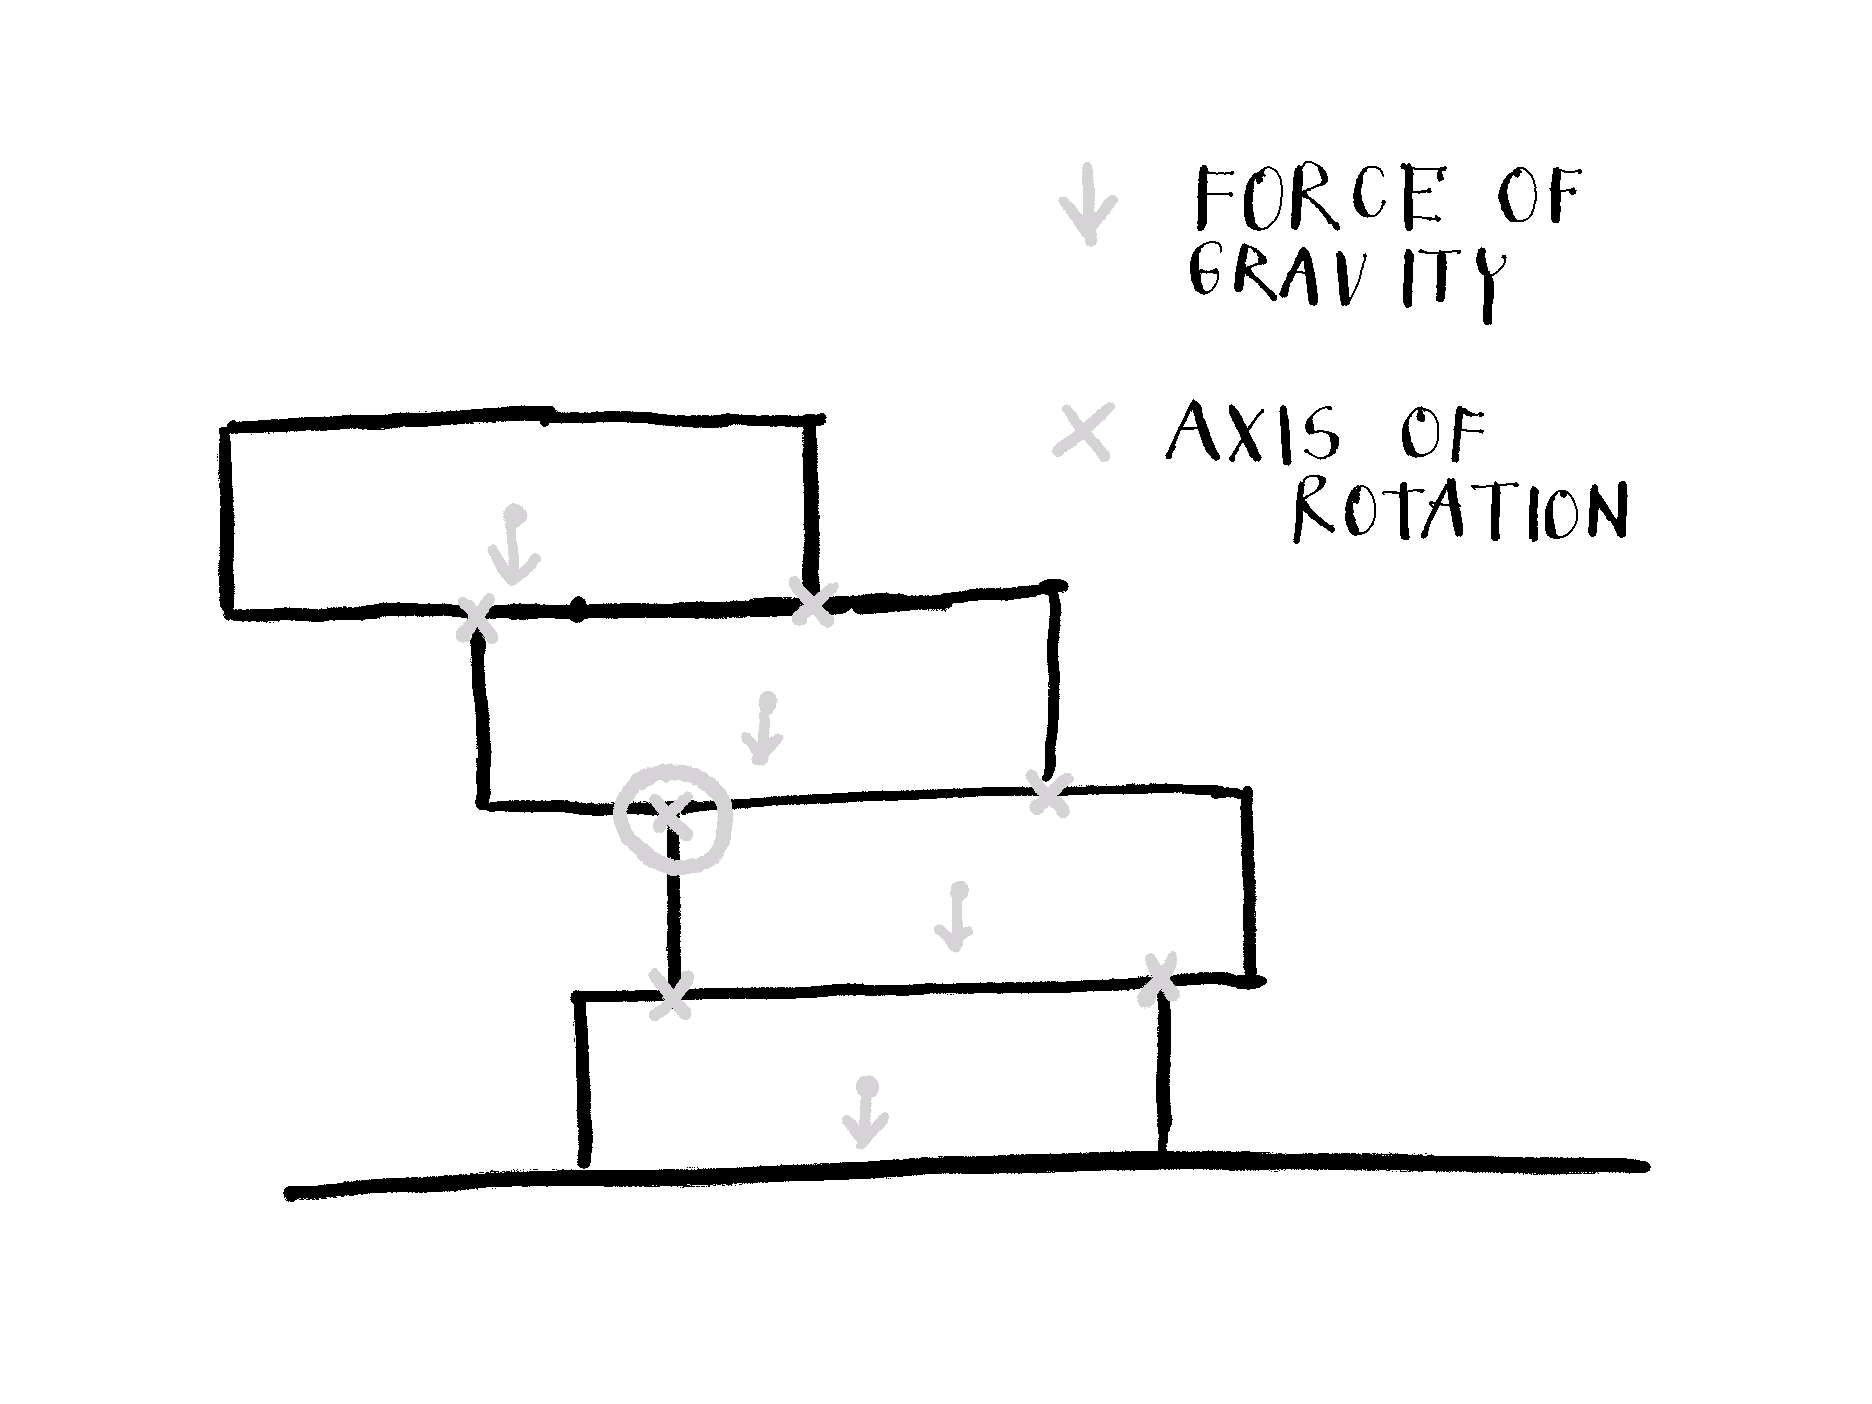 FORCE OF
GRAVITY
AXIS OF
ROTATION